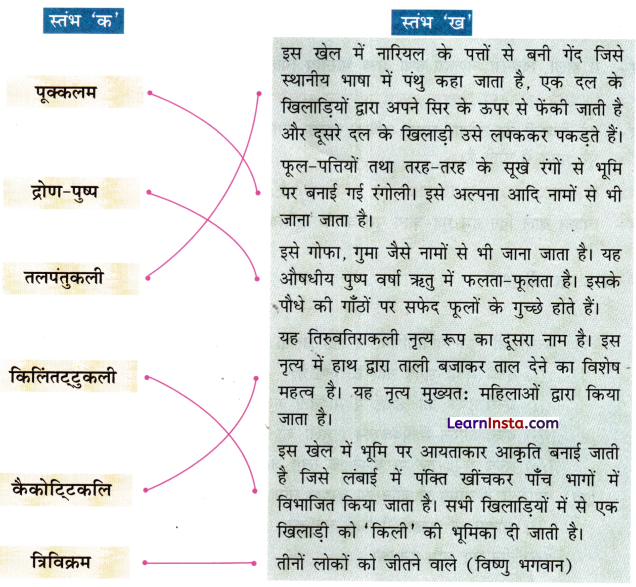 स्तंभ ‘क’
स्तंभ ‘ख’
पूक्कलम
द्रोण-पुष्प
तलपंतुकली
किलिंतट्टुकली
कैकोट्टिकलि
त्रिविक्रम
इस खेल में नारियल के पत्तों से बनी गेंद जिसे
स्थानीय भाषा में पंथु कहा जाता है, एक दल के
खिलाड़ियों द्वारा अपने सिर के ऊपर से फेंकी जाती है
और दूसरे दल के खिलाड़ी उसे लपककर पकड़ते हैं।
फूल-पत्तियों तथा तरह-तरह के सूखे रंगों से भूमि
पर बनाई गई रंगोली। इसे अल्पना आदि नामों से भी
जाना जाता है।
इसे गोफा, गुमा जैसे नामों से भी जाना जाता है। यह
औषधीय पुष्प वर्षा ऋतु में फलता-फूलता है। इसके
पौधे की गाँठों पर सफेद फूलों के गुच्छे होते हैं।
यह तिरुवतिराकली नृत्य रूप का दूसरा नाम है। इस
नृत्य में हाथ द्वारा ताली बजाकर ताल देने का विशेष
महत्व है। यह नृत्य मुख्यतः महिलाओं द्वारा किया
जाता है।
LearnInsta.com
इस खेल में भूमि पर आयताकार आकृति बनाई जाती
है जिसे लंबाई में पंक्ति खींचकर पाँच भागों में
विभाजित किया जाता है। सभी खिलाड़ियों में से एक
खिलाड़ी को ‘किली’ की भूमिका दी जाती है।
तीनों लोकों को जीतने वाले (विष्णु भगवान)